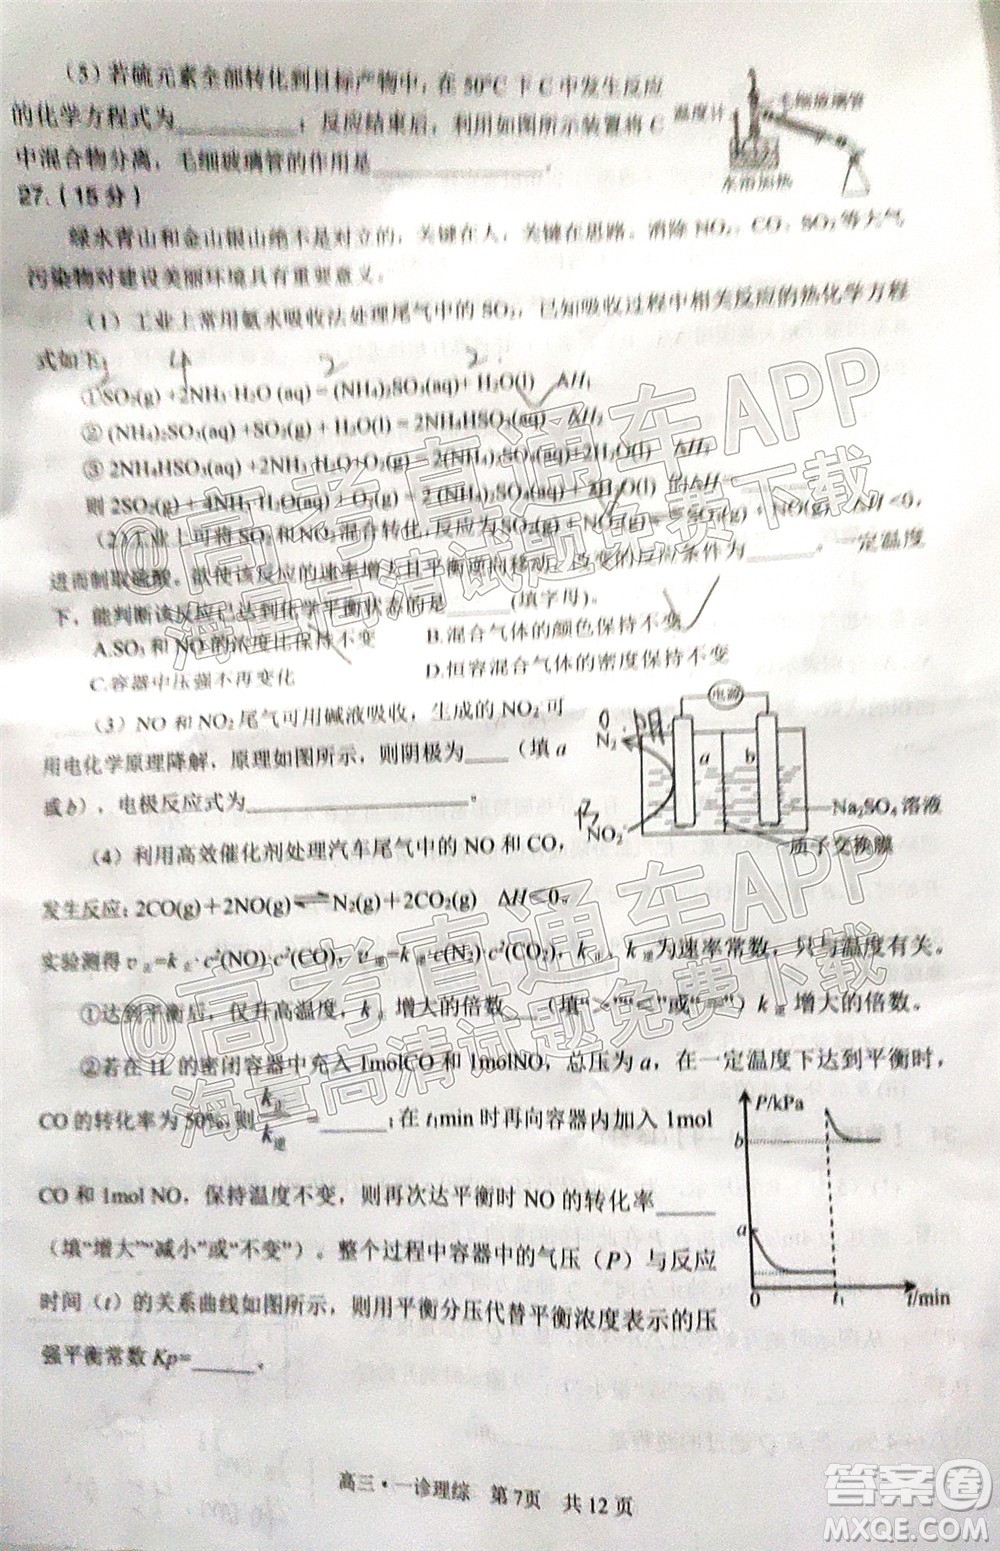 （5）若硫元素全部转化到目标产物中，在 50℃下 C 中发生反应
的化学方程式为________；反应结束后，利用如图所示装置将 C
中混合物分离，毛细玻璃管的作用是________。
温度计
毛细玻璃管
水浴加热
27.（15 分）
绿水青山和金山银山绝不是对立的，关键在人，关键在思路。消除 NO₂、CO、SO₂ 等大气
污染物对建设美丽环境具有重要意义。
（1）工业上常用氨水吸收法处理尾气中的 SO₂，已知吸收过程中相关反应的热化学方程
式如下：
①SO₂(g) +2NH₃·H₂O (aq) = (NH₄)₂SO₃(aq)+ H₂O(l)　ΔH₁
② (NH₄)₂SO₃(aq) +SO₂(g) + H₂O(l) = 2NH₄HSO₃(aq)　ΔH₂
③ 2NH₄HSO₃(aq) +O₂(g) = 2(NH₄)₂SO₄(aq)
则 2SO₂(g) +4NH₃·H₂O(aq)+ O₂(g) = 2 (NH₄)₂SO₄(aq)+2H₂O(l) 的ΔH=
（2）工业上可将 SO₂、NO₂混合转化，反应为 SO₂(g) + NO₂(g) SO₃(g) +NO(g)　ΔH <0，
进而制取硫酸。欲使该反应的速率增大且平衡逆向移动，改变的反应条件为______。一定温度
下，能判断该反应已达到化学平衡状态的是______（填字母）。
A.SO₃ 和 NO 的浓度比保持不变　B.混合气体的颜色保持不变
C.容器中压强不再变化　D.恒容混合气体的密度保持不变
（3）NO 和 NO₂ 尾气可用碱液吸收，生成的 NO₂⁻可
用电化学原理降解，原理如图所示，则阴极为____（填 a
或 b），电极反应式为________________。
电源
N₂
a
b
NO₂⁻
Na₂SO₄ 溶液
质子交换膜
（4）利用高效催化剂处理汽车尾气中的 NO 和 CO，
发生反应：2CO(g)＋2NO(g)⇌N₂(g)＋2CO₂(g)　ΔH<0。
实验测得 v正=k正·c²(NO)·c²(CO)，v逆=k逆·c(N₂)·c²(CO₂)，k正、k逆为速率常数，只与温度有关。
①达到平衡后，仅升高温度，k正 增大的倍数____（填“>”“<”或“=”）k逆增大的倍数。
②若在 1L 的密闭容器中充入 1molCO 和 1molNO，总压为 a，在一定温度下达到平衡时，
CO 的转化率为 50%，则 k正/k逆=______；在 t₁min 时再向容器中加入 1mol
CO 和 1mol NO，保持温度不变，则再次达平衡时 NO 的转化率____
（填“增大”“减小”或“不变”）。整个过程中容器中的气压（P）与反应
时间（t）的关系曲线如图所示，则用平衡分压代替平衡浓度表示的压
强平衡常数 Kp=______。
P/kPa
b
a
0
t₁
t/min
高三·一诊理综　第 7页　共 12 页
@高考直通车APP
海量高清试题免费下载
@高考直通车APP
海量高清试题免费下载
答案圈
MXQE.COM